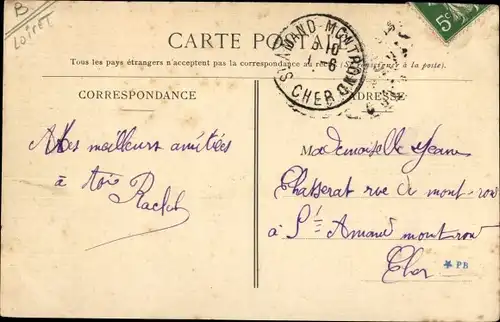 B
LOIRET
5c
CARTE POSTALE
Tous les pays étrangers n'acceptent pas la correspondance au recto (Se renseigner à la poste).
ST AMAND-MONTROND
10
6
CHER
CORRESPONDANCE
ADRESSE
Mes meilleurs amitiées
à toi Rachel
Mademoiselle Jeane
rue de mont-rou
à St Amand montrou
Cher
★ PB